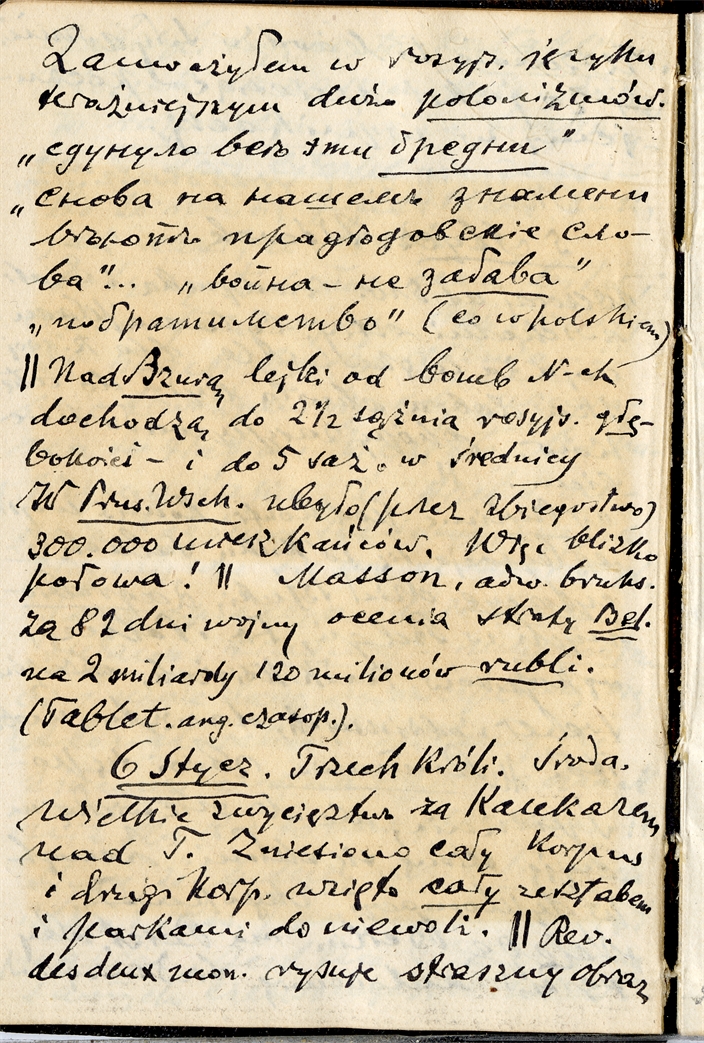 Zauważyłem w rosyjs. języku
teraźniejszym dużo polonizmów.
„сдунуло всю эти бредни”
„снова на нашемъ знамени
вѣютъ прадѣдовскіе сло-
ва”... „война – не забава”
„побратимство” (co w polskiem)
|| Nad Bzurą lejki od bomb N-ch
dochodzą do 2 1/2 sążnia rosyjs. głę-
bokości – i do 5 saż. w średnicy
W Prus. Wsch. ubyło (przez zbiegostwo)
300.000 mieszkańców. Więc blizko
połowa! || Masson, adw. bruks.
za 82 dni wojny ocenia straty Bel.
na 2 miliardy 120 milionów rubli.
(Tablet. ang. czasop.).
6 Stycz. Trzech Króli. Środa.
Wielkie zwycięztwo za Kaukazem
nad T. Zniesiono cały Korpus
i drugi Korp. wzięto cały ze sztabem
i parkami do niewoli. || Rev.
des deux mon. rysuje straszny obraz